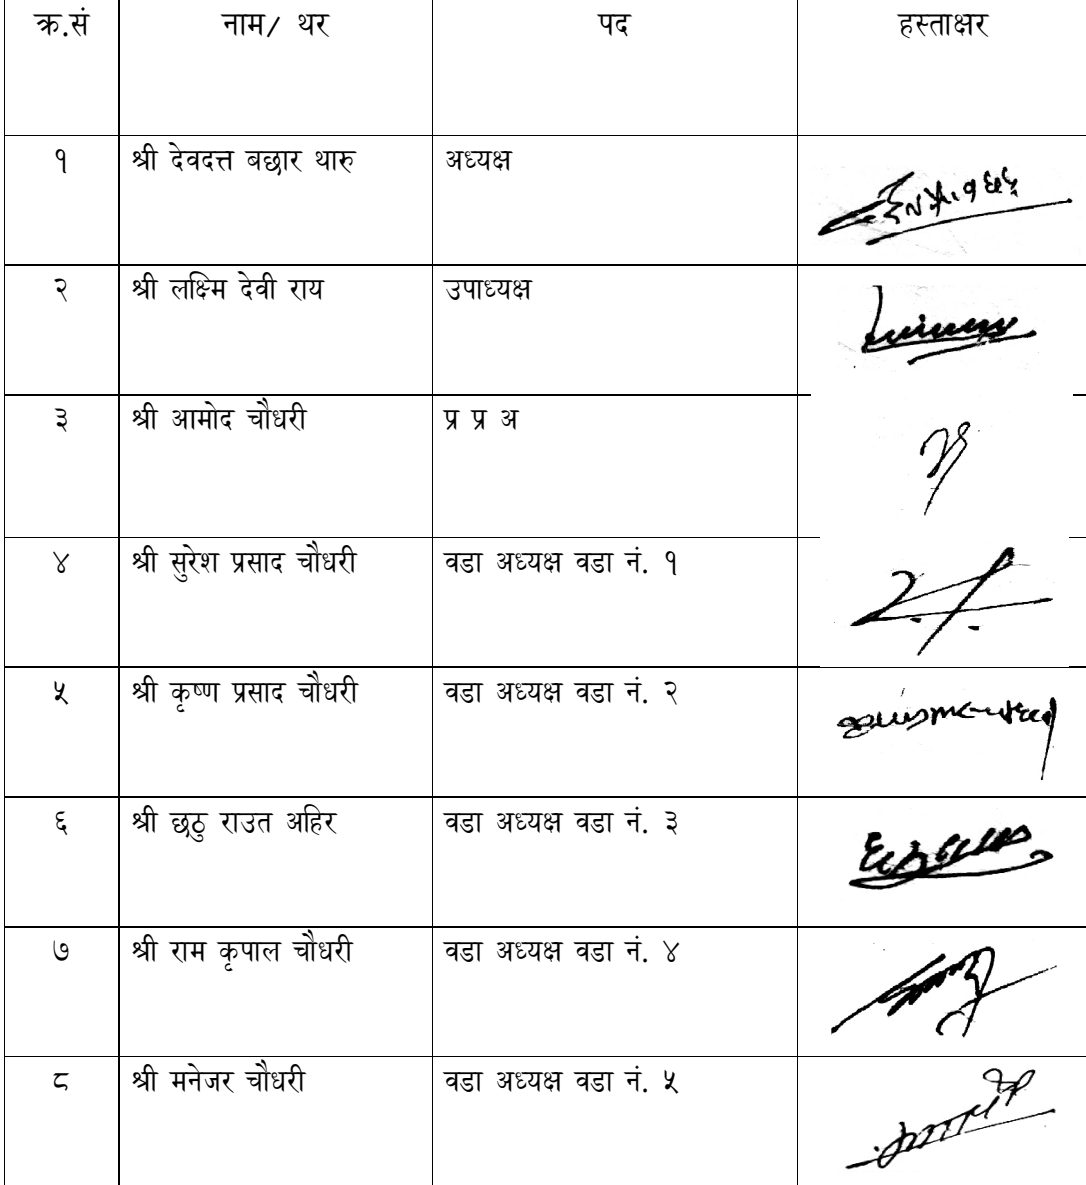 क्र.सं नाम/ थर पद हस्ताक्षर
१ श्री देवदत्त बछार थारु अध्यक्ष
२ श्री लक्ष्मि देवी राय उपाध्यक्ष
३ श्री आमोद चौधरी प्र प्र अ
४ श्री सुरेश प्रसाद चौधरी वडा अध्यक्ष वडा नं. १
५ श्री कृष्ण प्रसाद चौधरी वडा अध्यक्ष वडा नं. २
६ श्री छठु राउत अहिर वडा अध्यक्ष वडा नं. ३
७ श्री राम कृपाल चौधरी वडा अध्यक्ष वडा नं. ४
८ श्री मनेजर चौधरी वडा अध्यक्ष वडा नं. ५